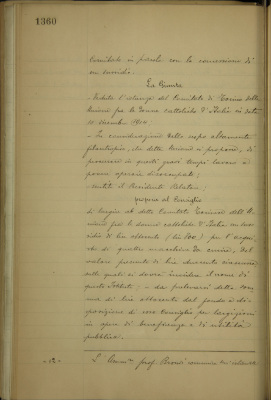 1360
Comitato in parola con la concessione di
un sussidio.
La Giunta
- Veduta l'istanza del Comitato di Torino della
Unione fra le Donne cattoliche d'Italia in data
11 dicembre 1914;
- In considerazione dello scopo altamente
filantropico, che detta Unione si propone, di
procurare in questi gravi tempi lavoro a
povere operaie disoccupate;
- sentito il Presidente Relatore;
propone al Consiglio
di largire al detto Comitato Torinese dell'U-
nione fra le donne cattoliche d'Italia un sus-
sidio di lire
di quattro macchine da cucire, del
valore presunto di lire duecento cinquanta
sulle quali si dovrà incidere il nome di
questo Istituto; - da prelevarsi detta som-
ma di lire ottocento dal fondo a di-
sposizione di esso Consiglio per largizioni
in opere di beneficenza e di utilità
pubblica.
- 12 -
L' prof.